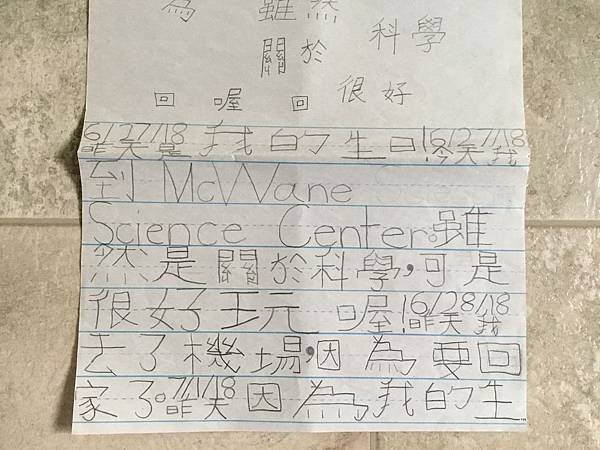 為 雖然
關於 科學
回 喔 回 很好
6/27/18 昨天是我的生日!6/27/18 今天我
到 McWane
Science Center。雖
然是關於科學,可是
很好玩喔!6/28/18 昨天我
去了機場,因為要回
家了。7/1/18 昨天因為我的生